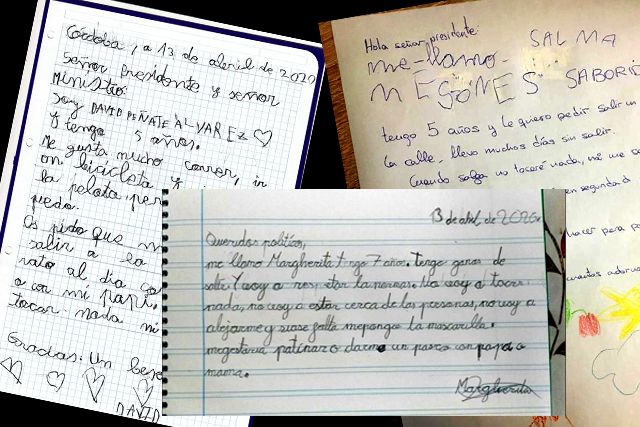 Córdoba, a 13 de abril de 2020
Señor presidente y señor
Ministro
Soy DAVID PEÑATE ALVAREZ
y tengo 5 años.
Me gusta mucho correr, ir
en bicicleta y
la pelota
Os pido que
salir a la
rato al día
a con mi papi,
tocar nada ni
Gracias. Un
DAVID
Hola señor presidente:
me-llamo SALMA
MEGONES SABORI
tengo 5 años y le quiero pedir salir un
la calle. llevo muchos días sin salir.
Cuando salga no tocaré nada, me
en segunda
hacer para
13 de abril, de 2020
Queridos políticos,
me llamo Margherita tengo 7 años. tengo ganas de
salir. Y voy a respetar la normas. No voy a tocar
nada, no voy a estar cerca de las personas, no voy a
alejarme y si hace falta me pongo la mascarilla.
me gustaría patinar o darme un paseo con papá o
mamá.
Margherita